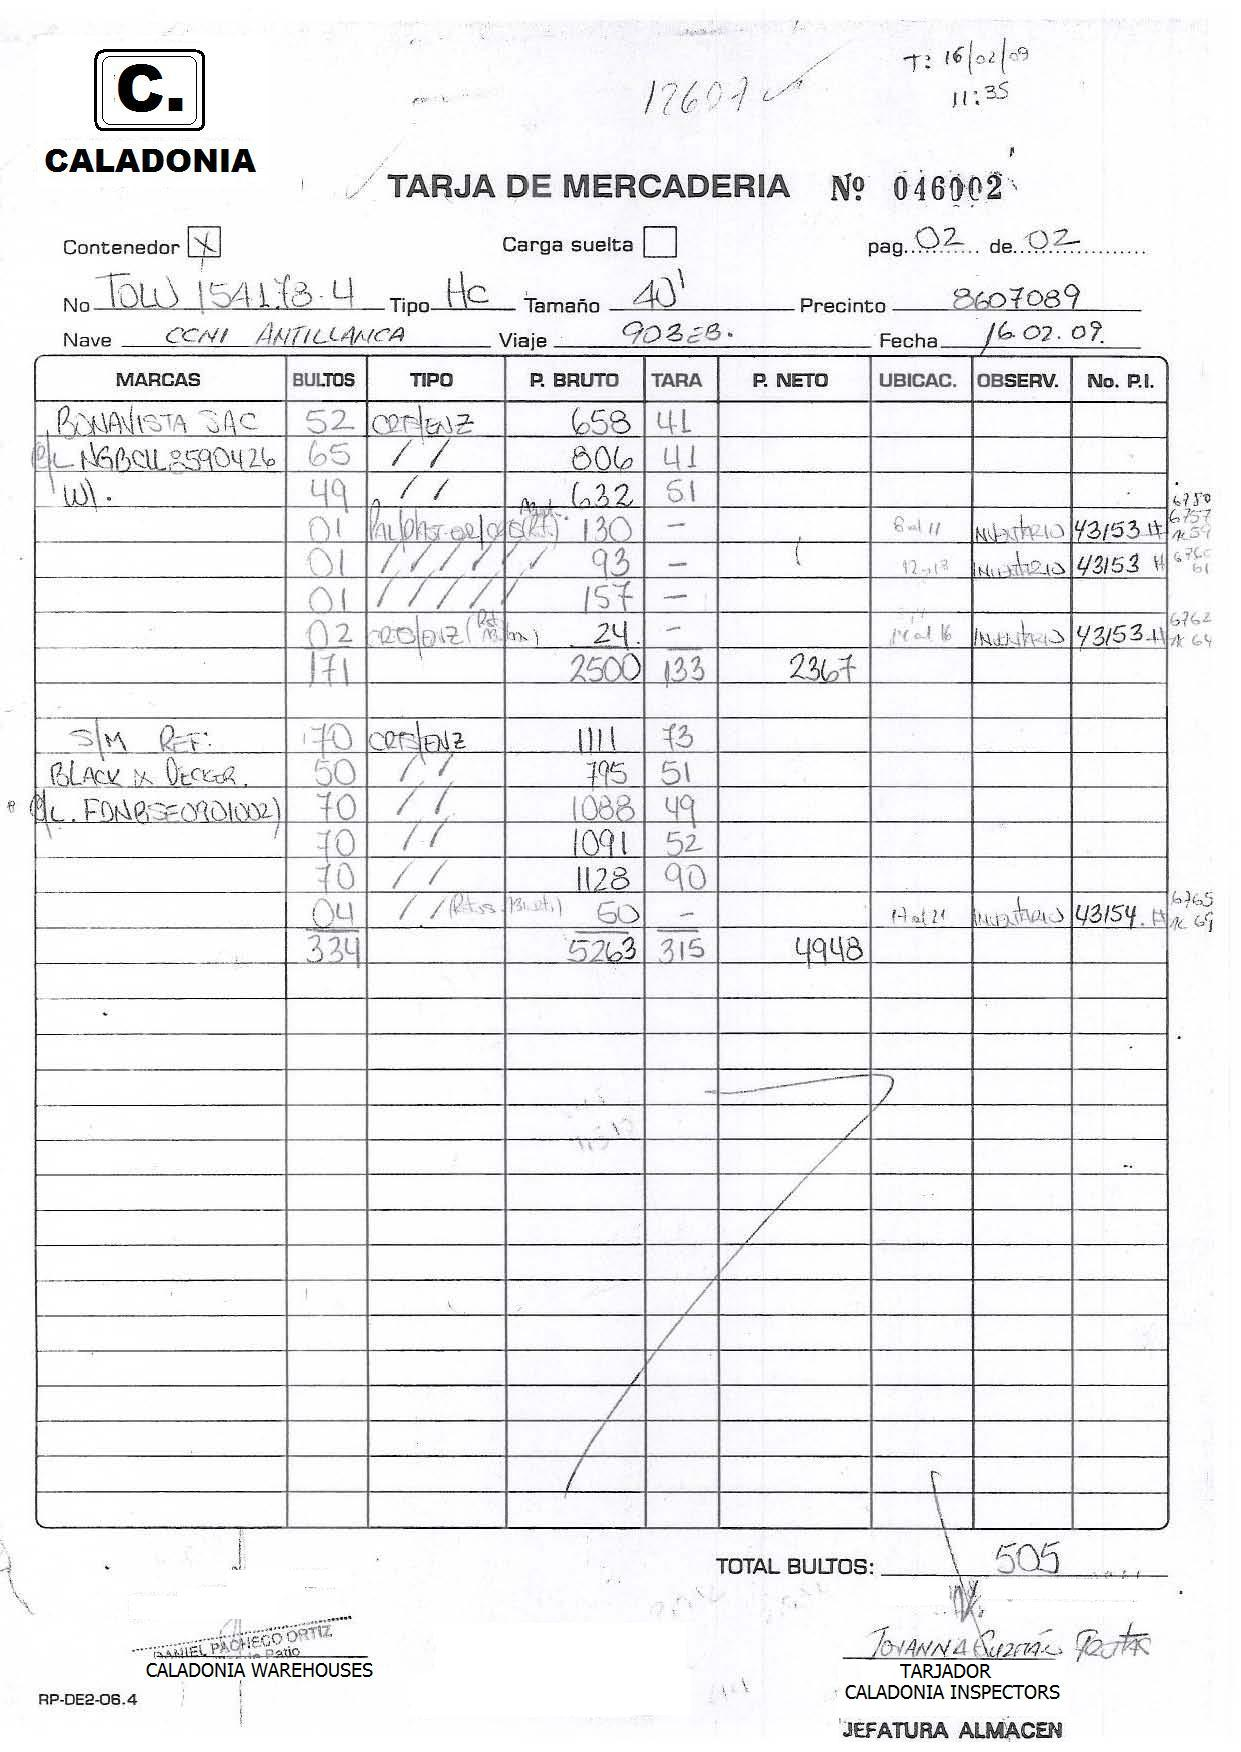 T: 16/02/09
12607
11:35
C.
CALADONIA
TARJA DE MERCADERIA Nº 046002
Contenedor X Carga suelta pag. 02 de. 02
No TOLU 154178-4 Tipo HC Tamaño 40' Precinto 8607089
Nave CCNI ANTILLANCA Viaje 903EB. Fecha 16.02.09.
MARCAS BULTOS TIPO P. BRUTO TARA P. NETO UBICAC. OBSERV. No. P.I.
BONAVISTA SAC 52 CRTS/ENZ 658 41
65 // 806 41
W/. 49 // 632 51 6750
01 130 - 8 al 11 INVENTARIO 43153 H 6757
01 ///// 93 - 12 y 13 INVENTARIO 43153 H
01 ///// 157 -
02 24. - 14 al 16 INVENTARIO 43153 H 6762 al 64
171 2500 133 2367
S/M REF: 70 CRTS/ENZ 1111 73
BLACK & DECKER. 50 // 795 51
(B/L. FDNBSE0901002) 70 // 1088 49
70 // 1091 52
70 // 1128 90
04 // 50 - 17 al 21 INVENTARIO 43154. H 6765 al 69
334 5263 315 4948
TOTAL BULTOS: 505
DANIEL PACHECO ORTIZ
Patio
CALADONIA WAREHOUSES
JOVANNA GUZMÁN
TARJADOR
CALADONIA INSPECTORS
RP-DE2-06.4
JEFATURA ALMACEN